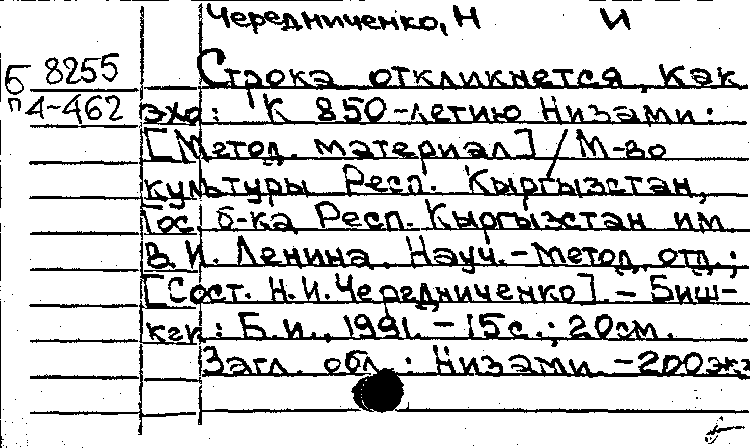 Чередниченко, Н И
б 8255
п 4-462
Строка откликнется, как
эхо: К 850-летию Низами:
[Метод. материал] / М-во
культуры Респ. Кыргызстан,
Гос. б-ка Респ. Кыргызстан им.
В.И. Ленина. Науч.-метод. отд.;
[Сост. Н.И. Чередниченко]. - Биш-
кек: Б.и., 1991. - 15 с.; 20 см.
Загл. обл.: Низами. - 200 экз